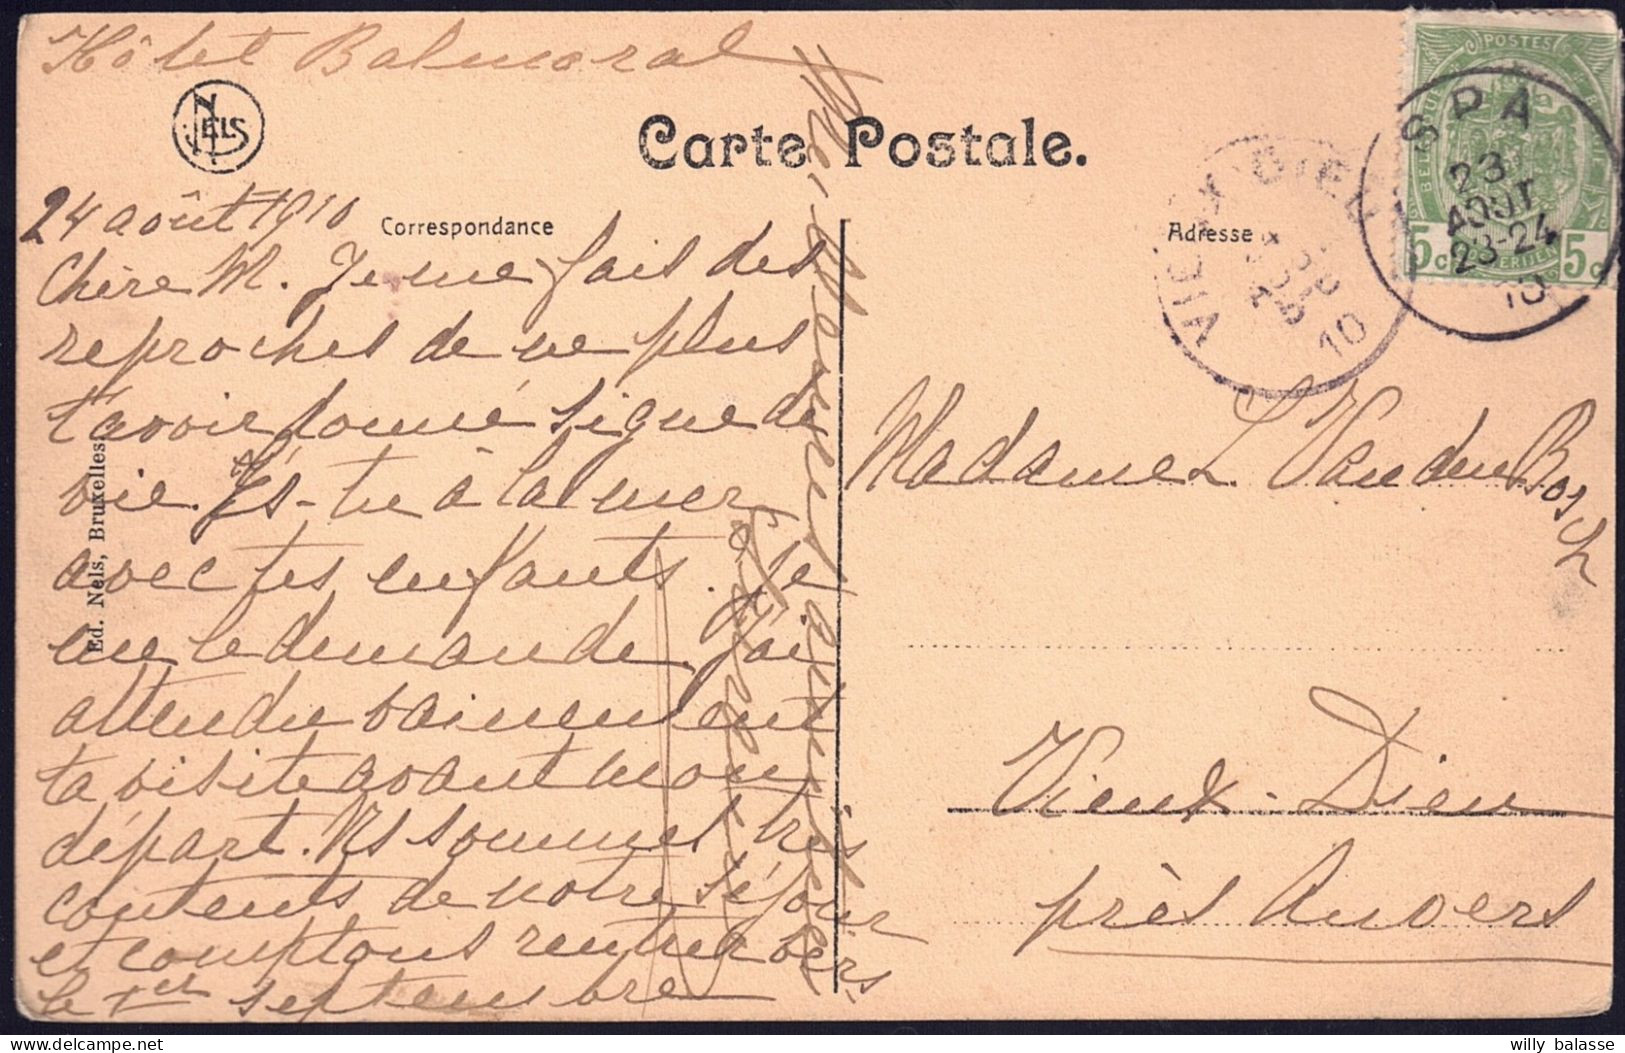 Hôtel Balmoral
NELS
Carte Postale.
24 août 1910
Correspondance
Adresse
Chère M. Je me fais des
reproches de ne plus
t'avoir donné signe de
vie. Es-tu à la mer
avec tes enfants. Je
me le demande. J'ai
attendu vainement
ta visite avant mon
départ. Ns sommes très
contents de notre séjour
et comptons rentrer vers
le 1er septembre
Ed. Nels, Bruxelles.
POSTES
5c 5c
SPA
23
AOUT
23-24
10
VIEUX-DIEU
10
Madame L. Van den Bosch
Vieux-Dieu
près Anvers
willy balasse